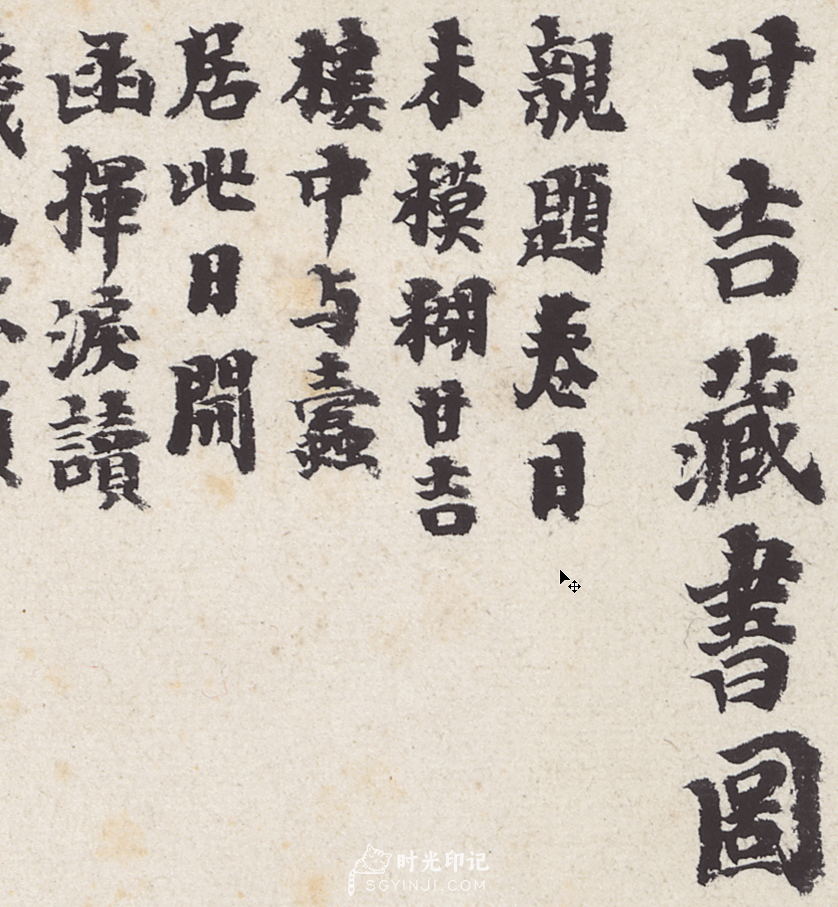 甘吉藏書圖
親題卷目
未模糊甘吉
樓中与蠹
居此日開
函揮淚讀
时光印记
SGYINJI.COM